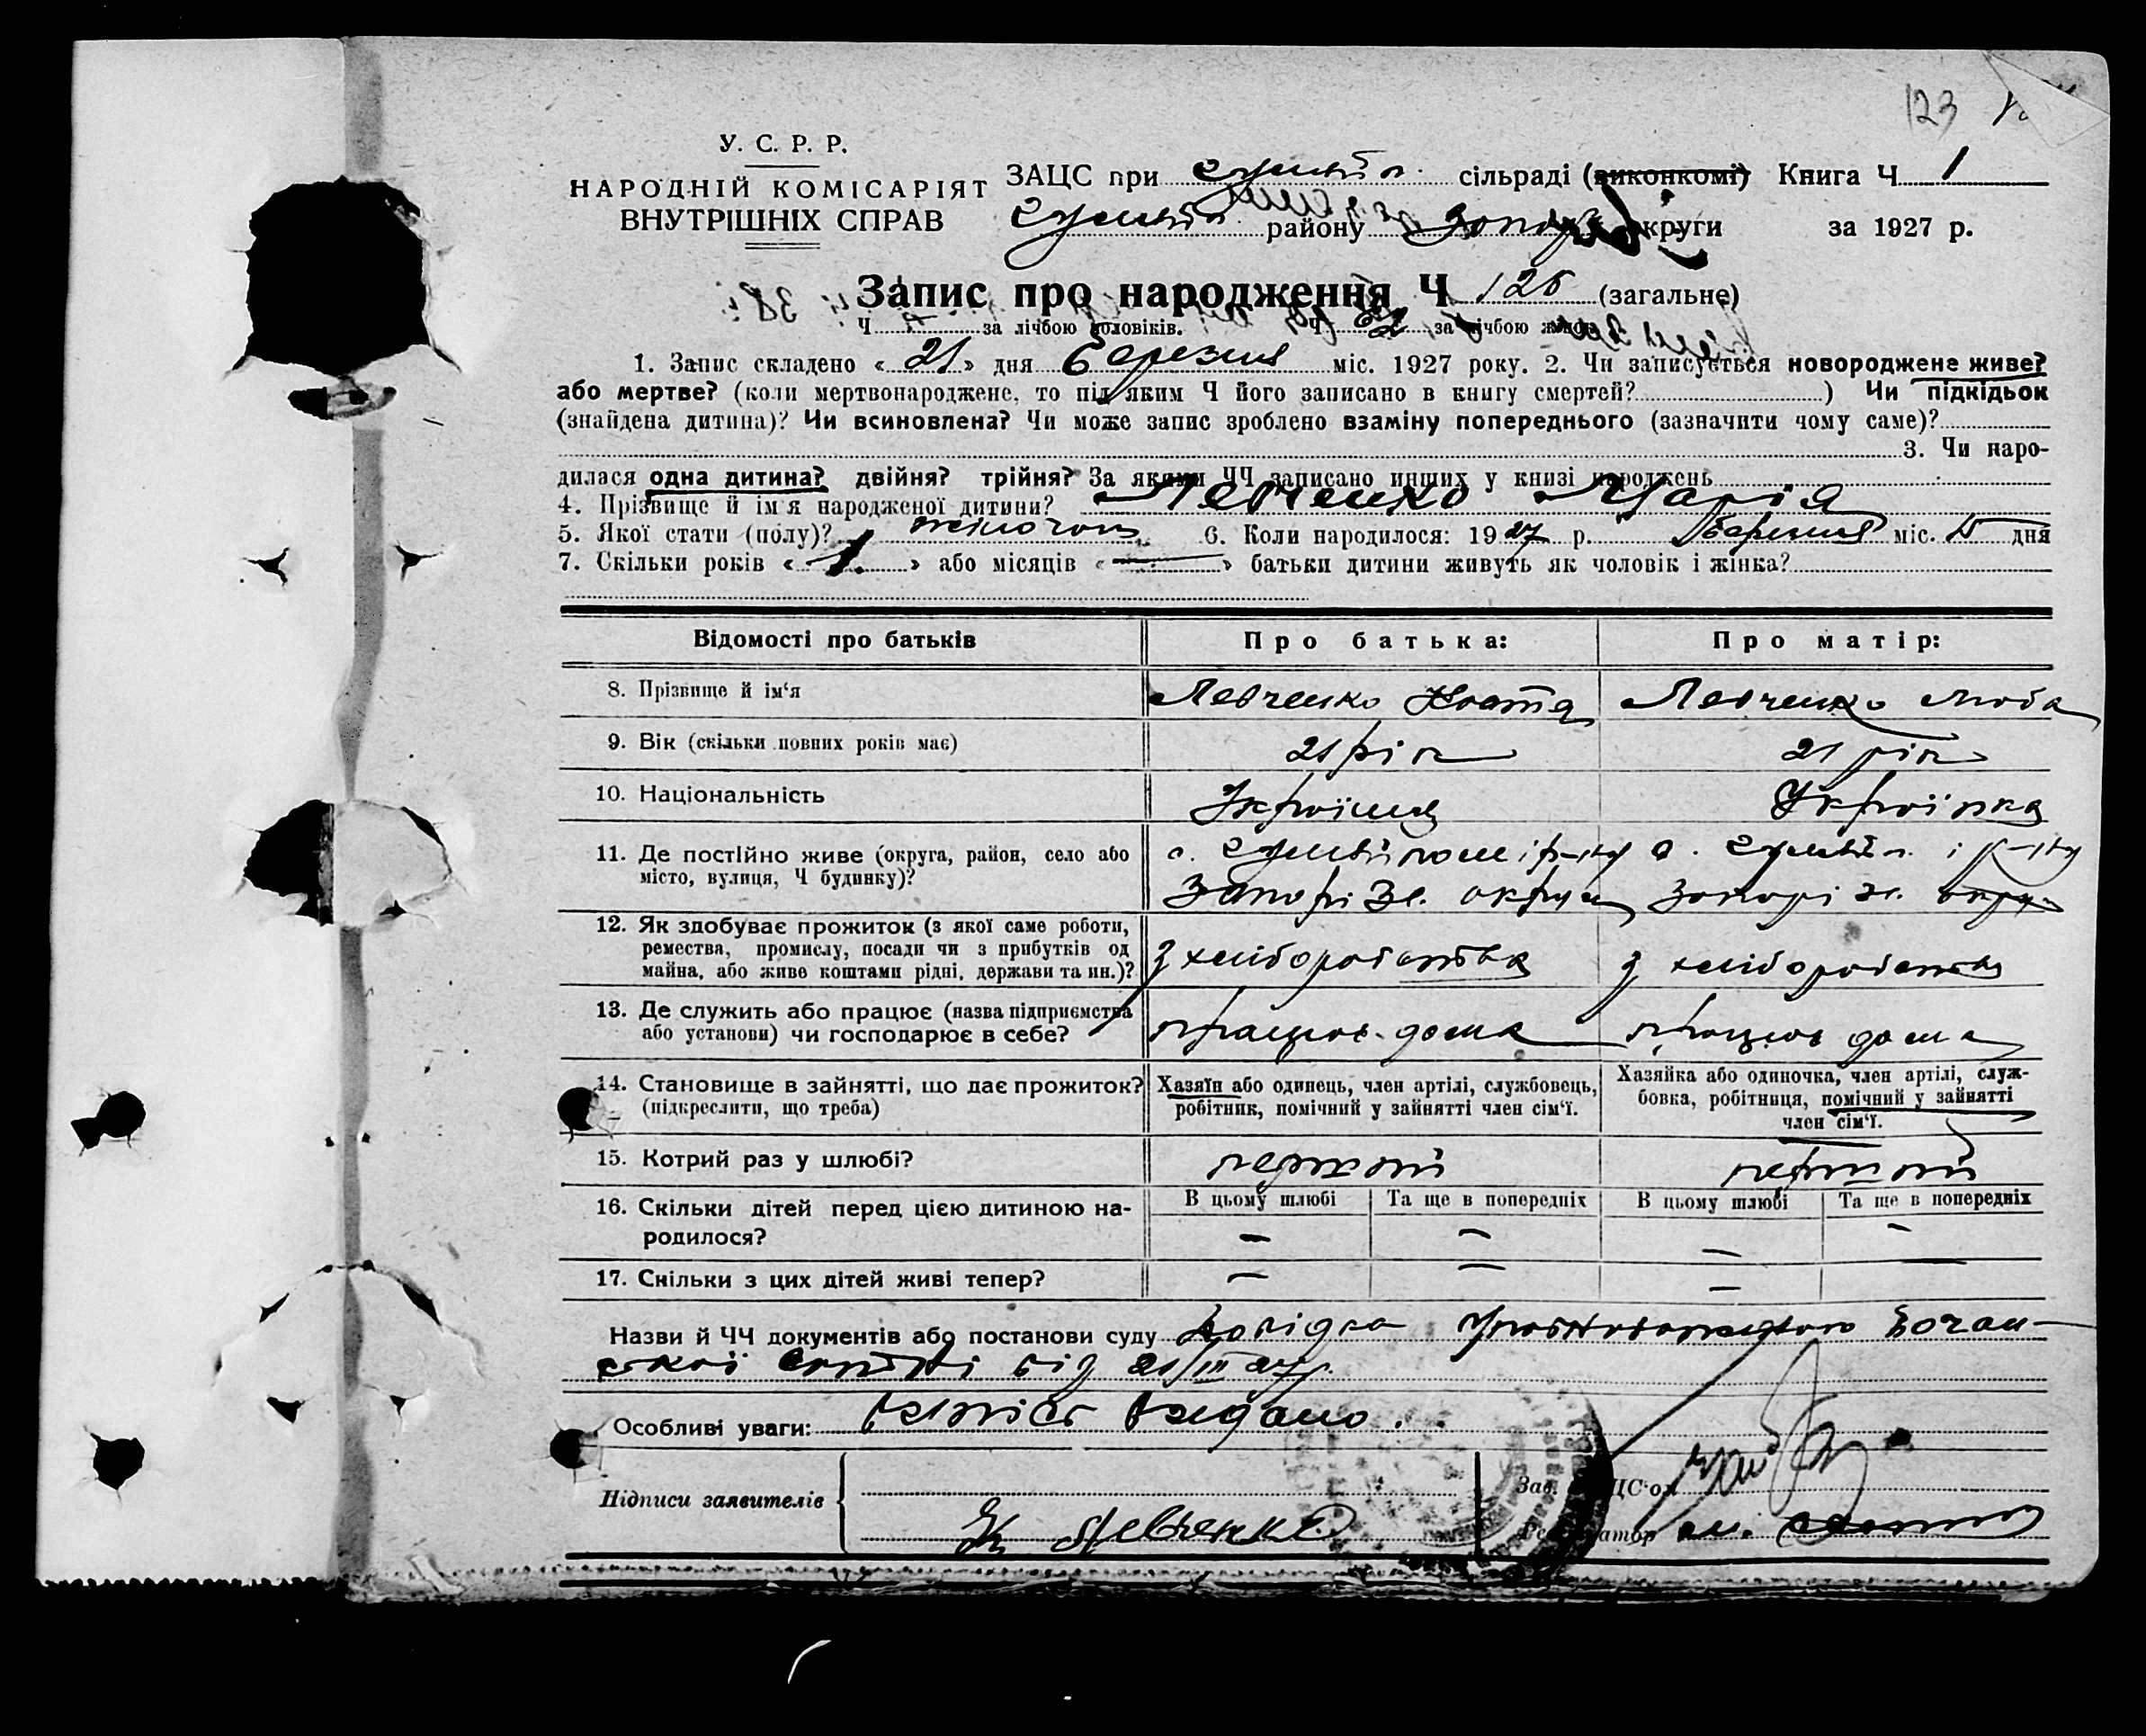 123
У. С. Р. Р.
НАРОДНІЙ КОМІСАРІЯТ
ВНУТРІШНІХ СПРАВ
ЗАЦС при сільраді (виконкомі) Книга Ч 1
району округи за 1927 р.
Запис про народження Ч 126 (загальне)
Ч за лічбою чоловіків. Ч 62 за лічбою жінок
1. Запис складено « 21 » дня березня міс. 1927 року. 2. Чи записується новороджене живе?
або мертве? (коли мертвонароджене, то під яким Ч його записано в книгу смертей? ) Чи підкідьок
(знайдена дитина)? Чи всиновлена? Чи може запис зроблено взаміну попереднього (зазначити чому саме)?
3. Чи наро-
дилася одна дитина? двійня? трійня? За якими ЧЧ записано инших у книзі народжень
4. Прізвище й ім'я народженої дитини? Левченко Марія
5. Якої стати (полу)? жіночої 6. Коли народилося: 1927 р. березня міс. 15 дня
7. Скільки років « 1. » або місяців « — » батьки дитини живуть як чоловік і жінка?
Відомості про батьків Про батька: Про матір:
8. Прізвище й ім'я Левченко Костя Левченко Люба
9. Вік (скільки повних років має) 21 рік 21 рік
10. Національність Україн. Українка
11. Де постійно живе (округа, район, село або
місто, вулиця, Ч будинку)?
Запоріз. округи Запоріж. округи
12. Як здобуває прожиток (з якої саме роботи,
ремества, промислу, посади чи з прибутків од
майна, або живе коштами рідні, держави та ин.)?
з хліборобства з хліборобства
13. Де служить або працює (назва підприємства
або установи) чи господарює в себе?
працює дома працює дома
14. Становище в зайнятті, що дає прожиток?
(підкреслити, що треба)
Хазяїн або одинець, член артілі, службовець,
робітник, помічний у зайнятті член сім'ї.
Хазяйка або одиночка, член артілі, служ-
бовка, робітниця, помічний у зайнятті
член сім'ї.
15. Котрий раз у шлюбі? перший перший
16. Скільки дітей перед цією дитиною на-
родилося?
В цьому шлюбі Та ще в попередніх В цьому шлюбі Та ще в попередніх
– – – –
17. Скільки з цих дітей живі тепер? – – – –
Назви й ЧЧ документів або постанови суду Довідка
від 21/III 27р.
Особливі уваги: видано.
Підписи заявителів
К Левченко
Зав. ЗАЦС'ом
Реєстратор